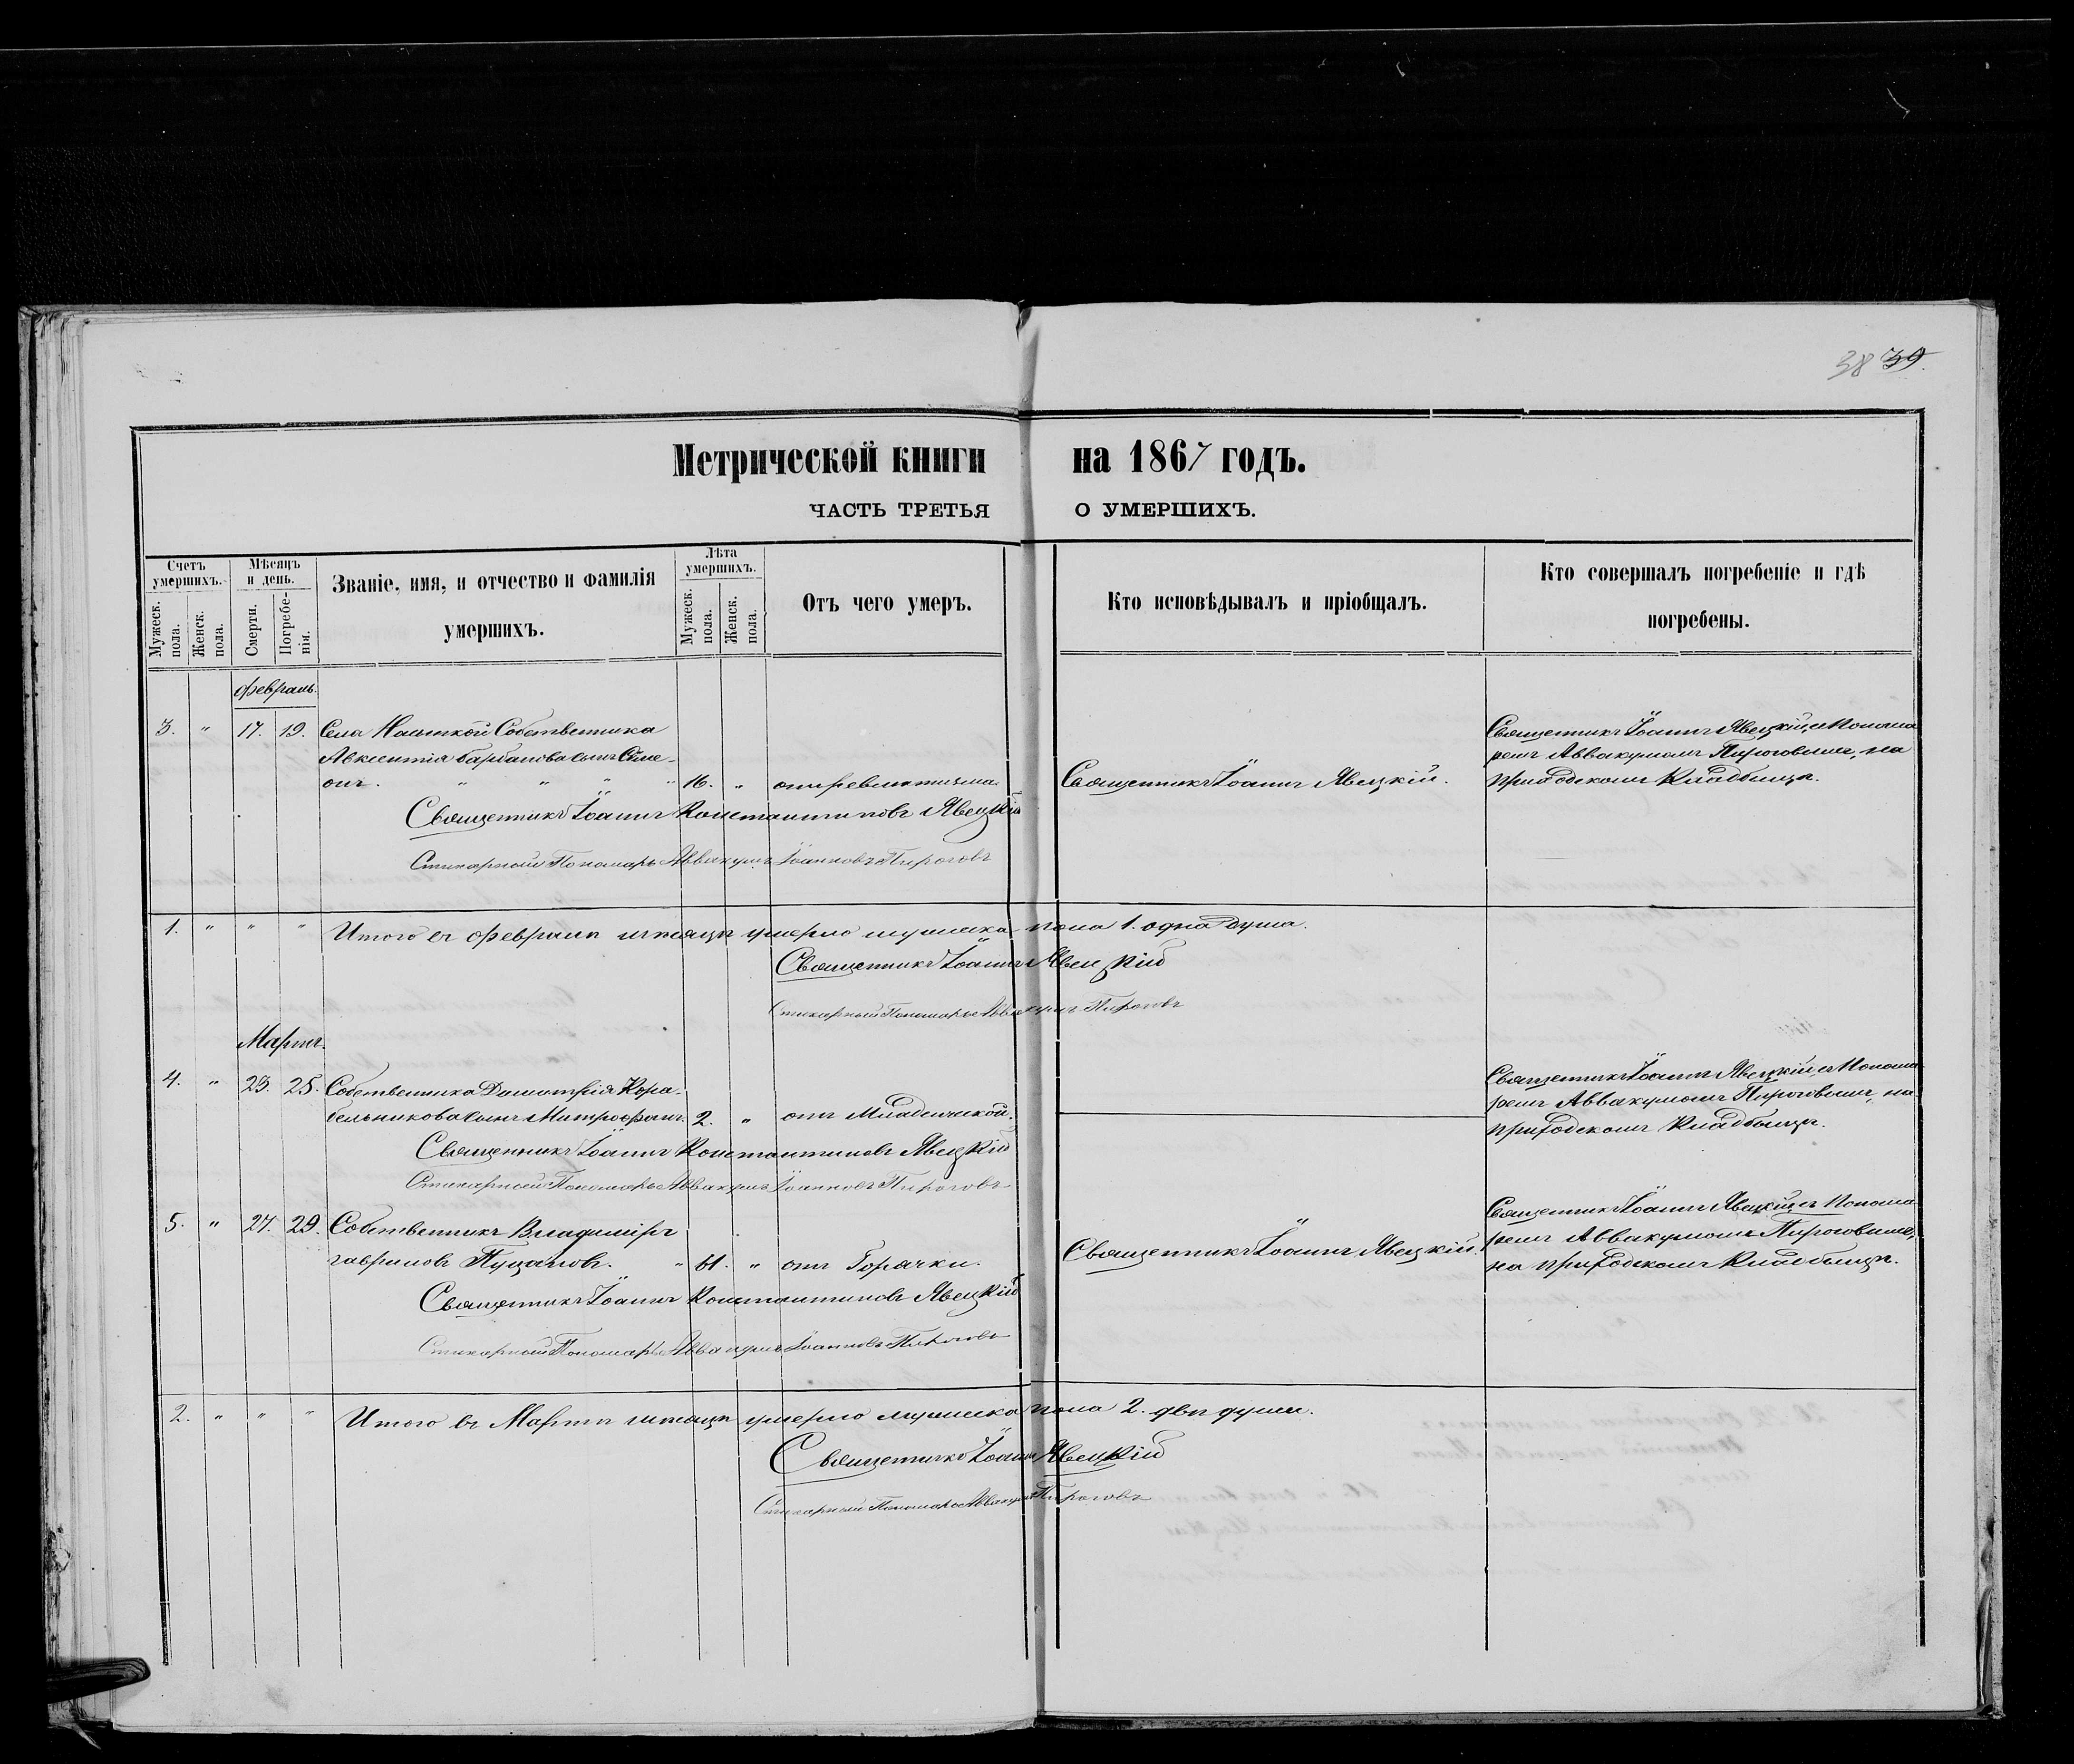 38 39.
Метрической книги на 1867 годъ.
ЧАСТЬ ТРЕТЬЯ О УМЕРШИХЪ.
Счетъ умершихъ.
Мужеск. пола.
Женск. пола.
Мѣсяцъ и день.
Смерти.
Погребенія.
Званіе, имя, и отчество и фамилія
умершихъ.
Лѣта умершихъ.
Мужеск. пола.
Женск. пола.
Отъ чего умеръ.
Кто исповѣдывалъ и пріобщалъ.
Кто совершалъ погребеніе и гдѣ
погребены.
Февраль.
3. " 17. 19. Села Собственника
Авксентія Барбанова сынъ Симе-
онъ. " " " " 16. " отъ ревматизма.
Священникъ Іоаннъ Явецкій.
Священникъ Іоаннъ Явецкій, съ Понома
ремъ Аввакумомъ Пироговымъ, на
приходскомъ кладбищѣ.
Священникъ Іоаннъ Константиновъ Явецкій
Стихарный Пономарь Аввакумъ Іоанновъ Пироговъ
1. " " " Итого въ Февралѣ мѣсяцѣ умерло мужеска пола 1. одна душа.
Священникъ Іоаннъ Явецкій
Стихарный Пономарь Аввакумъ Пироговъ
Мартъ.
4. " 23. 25. Собственника Димитрія Кора-
бельникова сынъ Митрофанъ. 2. " отъ Младенческой.
Священникъ Іоаннъ Явецкій, съ Понома
ремъ Аввакумомъ Пироговымъ, на
приходскомъ кладбищѣ.
Священникъ Іоаннъ Константиновъ Явецкій
Стихарный Пономарь Аввакумъ Іоанновъ Пироговъ
5. " 27. 29. Собственникъ Владиміръ
Гавриловъ Пуцановъ. " 61. " отъ Горячки.
Священникъ Іоаннъ Явецкій.
Священникъ Іоаннъ Явецкій съ Понома
ремъ Аввакумомъ Пироговымъ,
на приходскомъ кладбищѣ.
Священникъ Іоаннъ Константиновъ Явецкій
Стихарный Пономарь Аввакумъ Іоанновъ Пироговъ
2. " " " Итого въ Мартѣ мѣсяцѣ умерло мужеска пола 2. двѣ души.
Священникъ Іоаннъ Явецкій
Стихарный Пономарь Аввакумъ Пироговъ